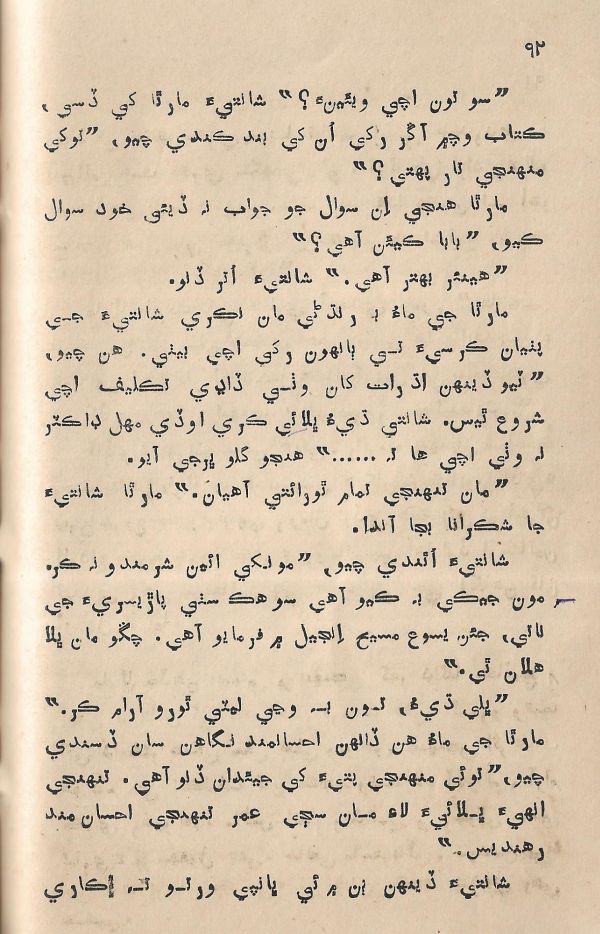 ۹۲
”سو تون اچي ويئينءَ؟“ شانتيءَ مارٿا کي ڏسي،
ڪتاب وچ ۾ آڱر رکي اُن کي بند ڪندي چيو، ”توکي
منهنجي تار پهتي؟“
مارٿا هنجي اِن سوال جو جواب نہ ڏيئي خود سوال
ڪيو، ”بابا ڪيئن آهي؟“
”هينئر بهتر آهي.“ شانتيءَ اُتر ڏنو.
مارٿا جي ماءُ بہ رنڌڻي مان نڪري شانتيءَ جي
پٺيان ڪرسيءَ تي ٻانهون رکي اچي بيٺي. هن چيو،
”ٽيو ڏينهن اڌ رات کان وٺي ڏاڍي تڪليف اچي
شروع ٿيس. شانتي ڌيءُ ڀلائي ڪري اوڏي مهل ڊاڪٽر
نہ وٺي اچي ها تہ ......“ هنجو گلو ڀرجي آيو.
”مان تنهنجي تمام ٿورائتي آهيان.“ مارٿا شانتيءَ
جا شڪرانا بجا آندا.
شانتيءَ اُٿندي چيو، ”مونکي ائين شرمندو نہ ڪر.
مون جيڪي بہ ڪيو آهي سو هڪ سٺي پاڙيسريءَ جي
ناتي، جيئن يسوع مسيح اِنجيل ۾ فرمايو آهي. چڱو مان ڀلا
هلان ٿي.“
”ڀلي ڌيءُ، تون بہ وڃي ليٽي ٿورو آرام ڪر.“
مارٿا جي ماءُ هن ڏانهن احسانمند نگاهن سان ڏسندي
چيو، ”توئي منهنجي پتيءَ کي جيئدان ڏنو آهي. تنهنجي
انهيءَ ڀلائيءَ لاءِ مان سڄي عمر تنهنجي احسان مند
رهنديس.“
شانتيءَ ڏينهن ٻن ۾ ئي ڀانپي ورتو تہ اِڪاري